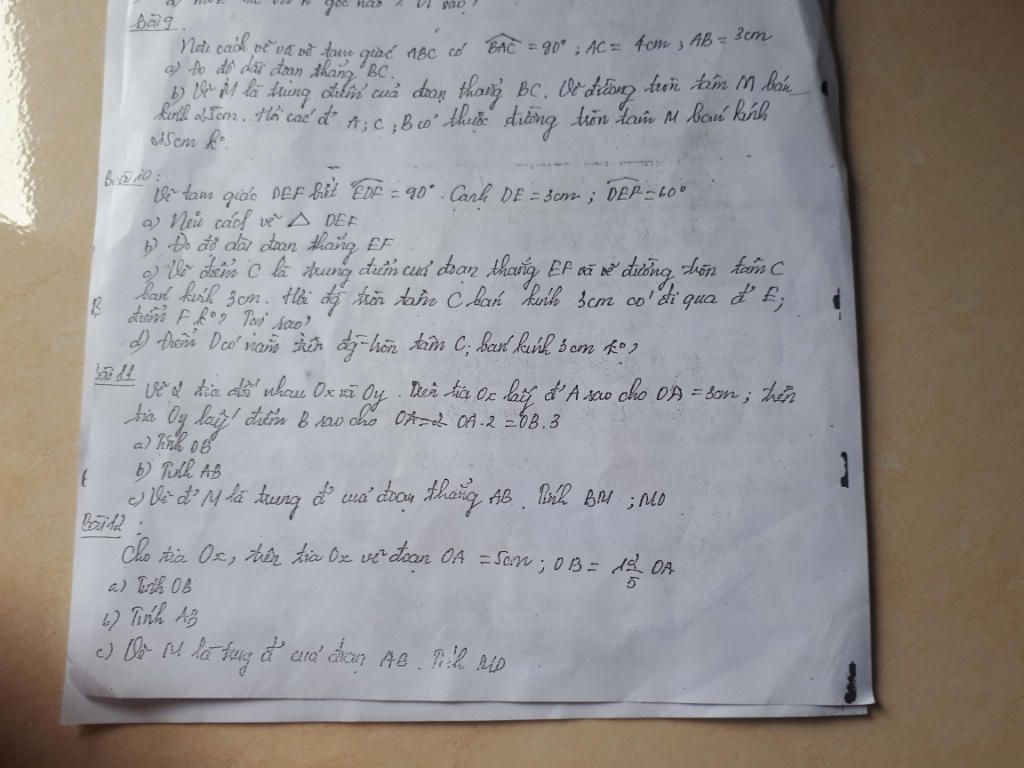 d) một thì ... là góc nào? Vì sao?
Bài 9.
Nêu cách vẽ và vẽ tam giác ABC có BAC = 90°; AC = 4cm; AB = 3cm
a) Đo độ dài đoạn thẳng BC.
b) Vẽ M là trung điểm của đoạn thẳng BC. Vẽ đường tròn tâm M bán
kính 2,5cm. Hỏi các đ' A; C; B có thuộc đường tròn tâm M bán kính
2,5cm k°.
Bài 10:
Vẽ tam giác DEF biết EDF = 90°. Cạnh DE = 3cm; DEF = 60°
a) Nêu cách vẽ △ DEF
b) Đo độ dài đoạn thẳng EF
c) Vẽ điểm C là trung điểm của đoạn thẳng EF và vẽ đường tròn tâm C
bán kính 3cm. Hỏi đg tròn tâm C bán kính 3cm có đi qua đ' E;
điểm F k°? Tại sao?
d) Điểm D có nằm trên đg tròn tâm C; bán kính 3cm k°?
Bài 11
Vẽ 2 tia đối nhau Ox và Oy. Trên tia Ox lấy đ' A sao cho OA = 3cm; trên
tia Oy lấy điểm B sao cho OA = 2 OA.2 = OB.3
a) Tính OB
b) Tính AB
c) Vẽ đ' M là trung đ' của đoạn thẳng AB. Tính BM; MO
Bài 12:
Cho tia Ox, trên tia Ox vẽ đoạn OA = 5cm; OB = 1 2/5 OA
a) Tính OB
b) Tính AB
c) Vẽ M là trung đ' của đoạn AB. Tính MO